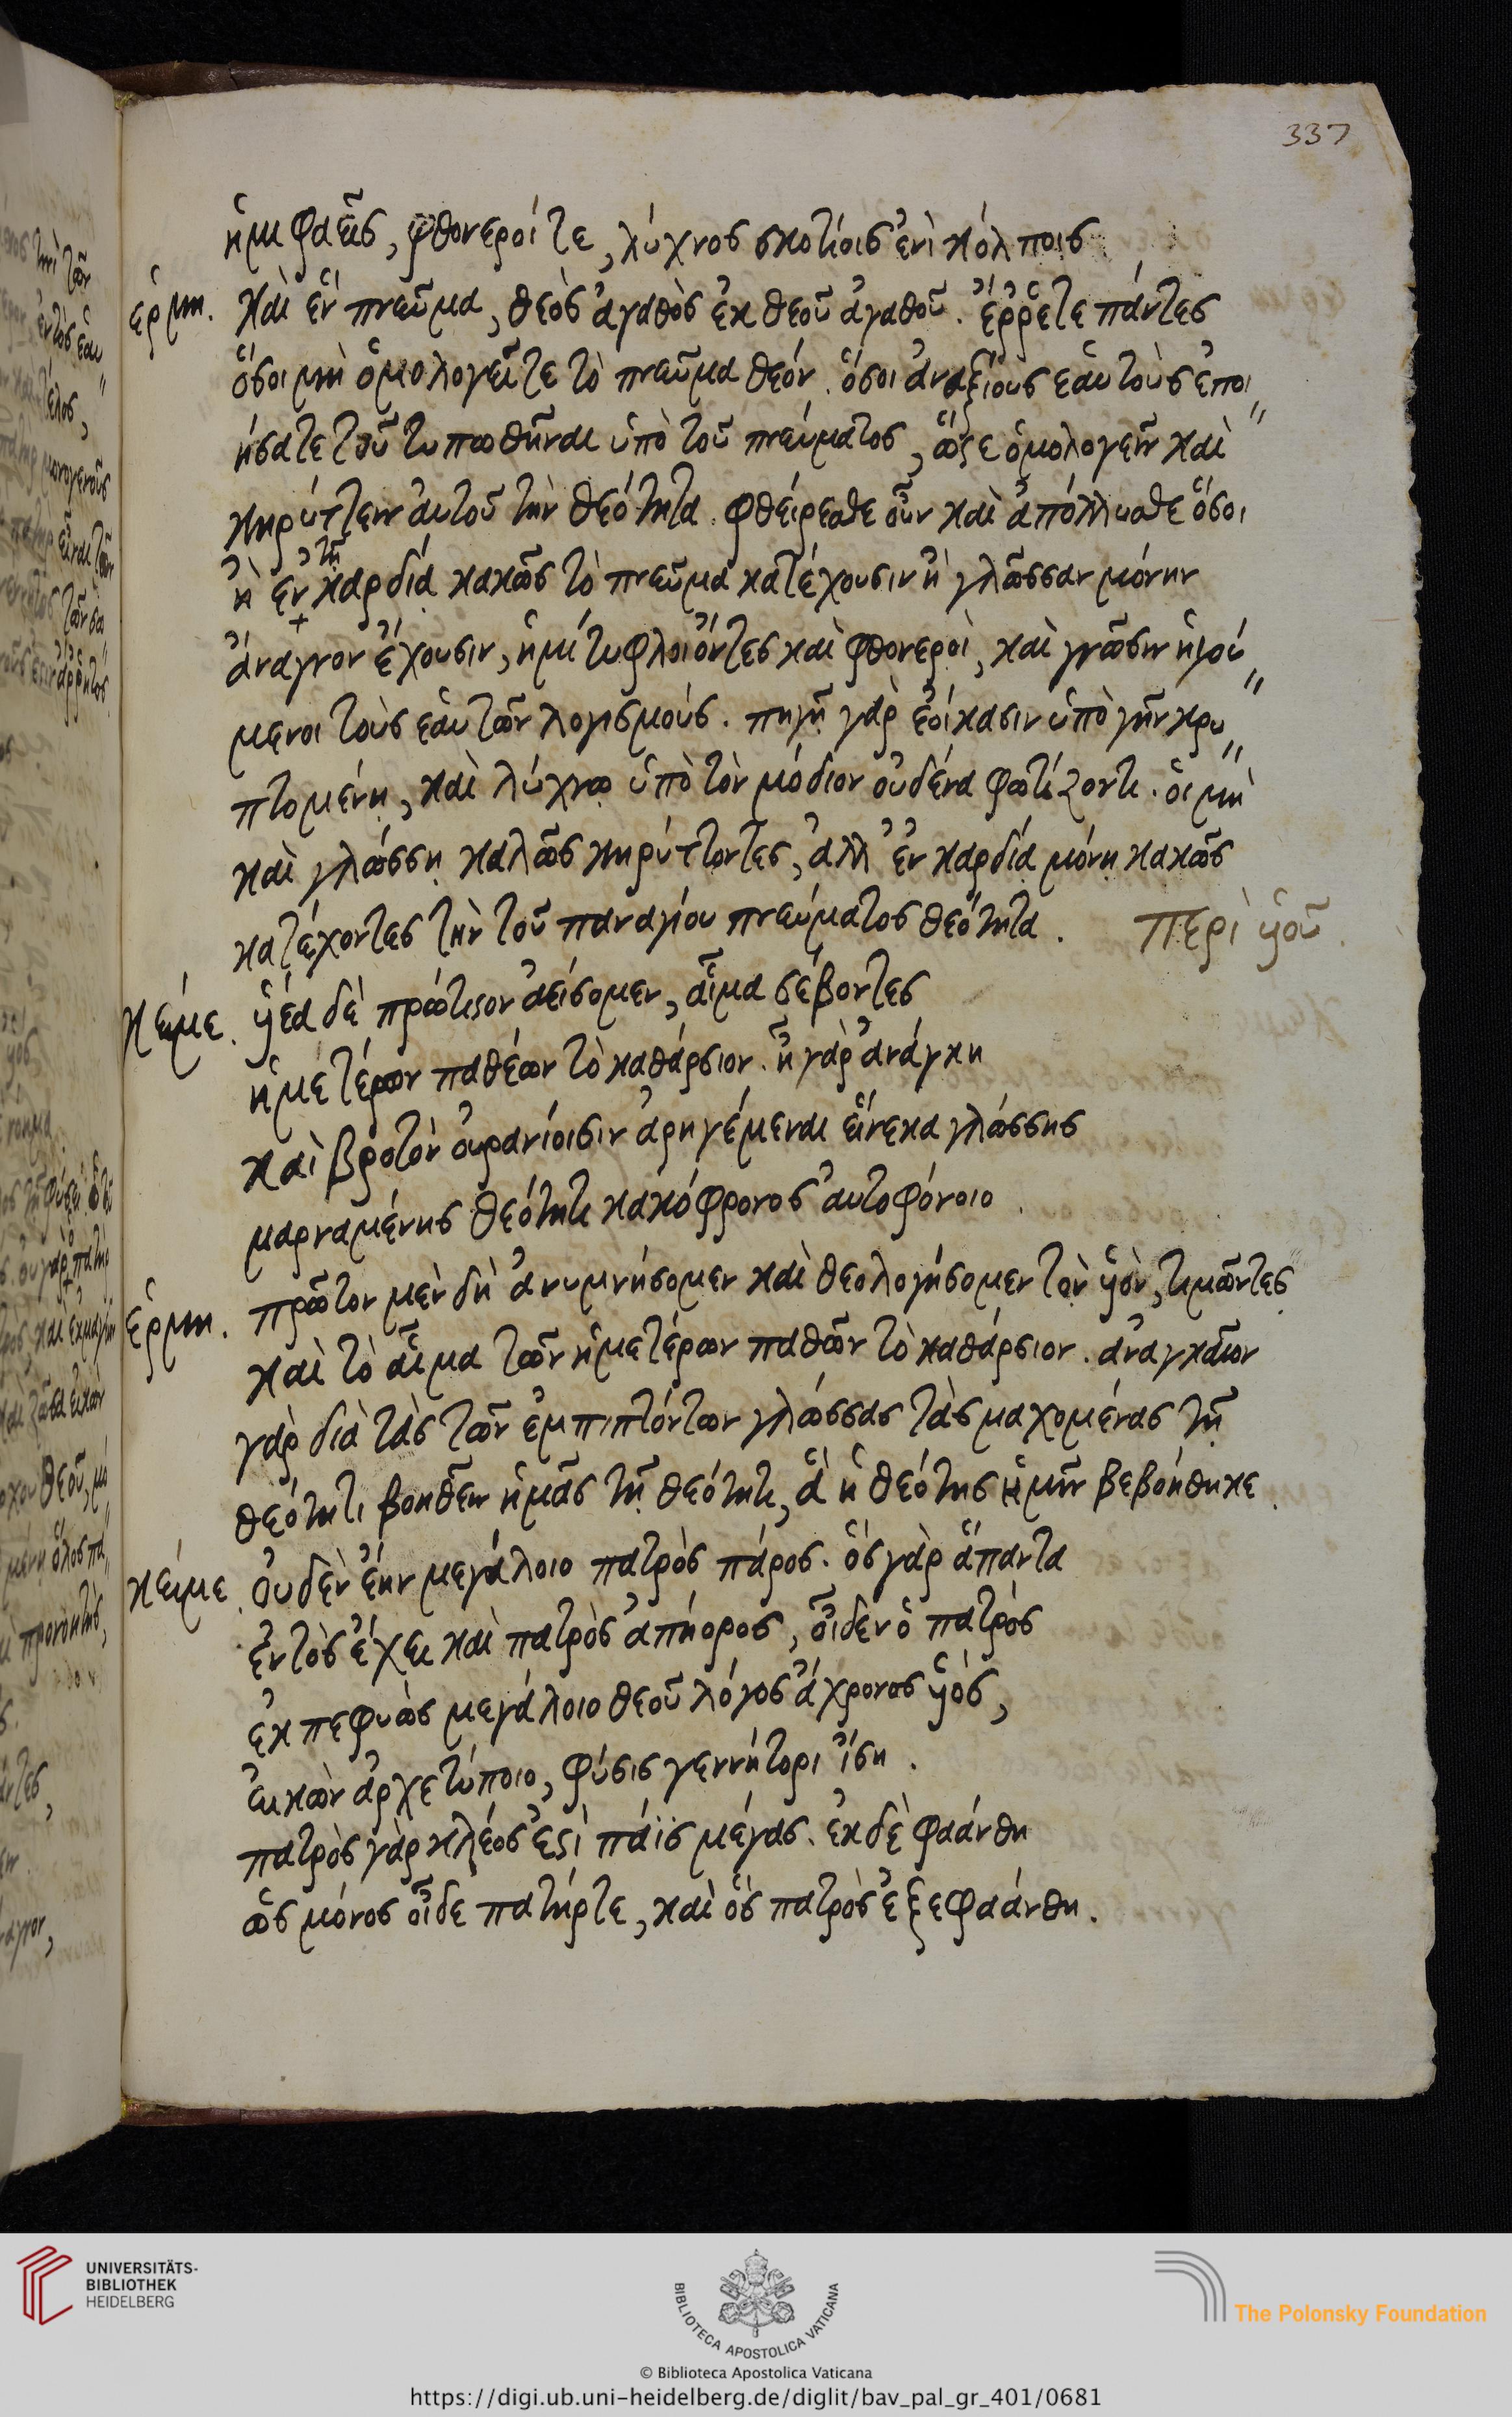 337
ἡμιφαεῖς, φθονεροί τε, λύχνος σκοτίοις ἐνὶ κόλποις
ἑρμη. καὶ ἓν πνεῦμα, θεὸς ἀγαθὸς ἐκ θεοῦ ἀγαθοῦ. ἔῤῥετε πάντες
ὅσοι μὴ ὁμολογεῖτε τὸ πνεῦμα θεόν. ὅσοι ἀναξίους ἑαυτοὺς ἐποι
ήσατε τοῦ τυπωθῆναι ὑπὸ τοῦ πνεύματος, ὥστε ὁμολογεῖν καὶ
κηρύττειν αὐτοῦ τὴν θεότητα. φθείρεσθε οὖν καὶ ἀπόλλυσθε ὅσοι
ἢ ἐν τῇ καρδίᾳ κακῶς τὸ πνεῦμα κατέχουσιν ἢ γλῶσσαν μόνην
ἄναγνον ἔχουσιν, ἡμίτυφλοι ὄντες καὶ φθονεροὶ, καὶ γνῶσιν ἡγού
μενοι τοὺς ἑαυτῶν λογισμούς. πηγῇ γὰρ ἐοίκασιν ὑπὸ γῆν κρυ
πτομένῃ, καὶ λύχνῳ ὑπὸ τὸν μόδιον οὐδένα φωτίζοντι. οἱ μὴ
καὶ γλώσσῃ καλῶς κηρύττοντες, ἀλλ' ἐν καρδίᾳ μόνῃ κακῶς
κατέχοντες τὴν τοῦ παναγίου πνεύματος θεότητα. Περὶ υἱοῦ.
κείμε. υἱέα δὲ πρώτιστον ἀείσομεν, αἷμα σέβοντες
ἡμετέρων παθέων τὸ καθάρσιον. ἦ γὰρ ἀνάγκη
καὶ βροτὸν οὐρανίοισιν ἀρηγέμεναι εἵνεκα γλώσσης
μαρναμένης θεότητι κακόφρονος αὐτοφόνοιο.
ἑρμη. πρῶτον μὲν δὴ ἀνυμνήσομεν καὶ θεολογήσομεν τὸν υἱὸν, τιμῶντες
καὶ τὸ αἷμα τῶν ἡμετέρων παθῶν τὸ καθάρσιον. ἀναγκαῖον
γὰρ διὰ τὰς τῶν ἐμπιπτόντων γλώσσας τὰς μαχομένας τῇ
θεότητι βοηθεῖν ἡμᾶς τῇ θεότητι, ἃ ἡ θεότης ἡμῖν βεβοήθηκε.
κείμε. Οὐδὲν ἔην μεγάλοιο πατρὸς πάρος. ὃς γὰρ ἅπαντα
ἐντὸς ἔχει καὶ πατρὸς ἀπήορος, οἶδεν ὁ πατρὸς
ἐκπεφυὼς μεγάλοιο θεοῦ λόγος ἄχρονος υἱός,
εἰκὼν ἀρχετύποιο, φύσις γεννήτορι ἴση.
πατρὸς γὰρ κλέος ἐστὶ πάϊς μέγας. ἐκ δὲ φαάνθη
ὡς μόνος οἶδε πατήρ τε, καὶ ὃς πατρὸς ἐξεφαάνθη.
UNIVERSITÄTS-
BIBLIOTHEK
HEIDELBERG
BIBLIOTECA APOSTOLICA VATICANA
The Polonsky Foundation
© Biblioteca Apostolica Vaticana
https://digi.ub.uni-heidelberg.de/diglit/bav_pal_gr_401/0681